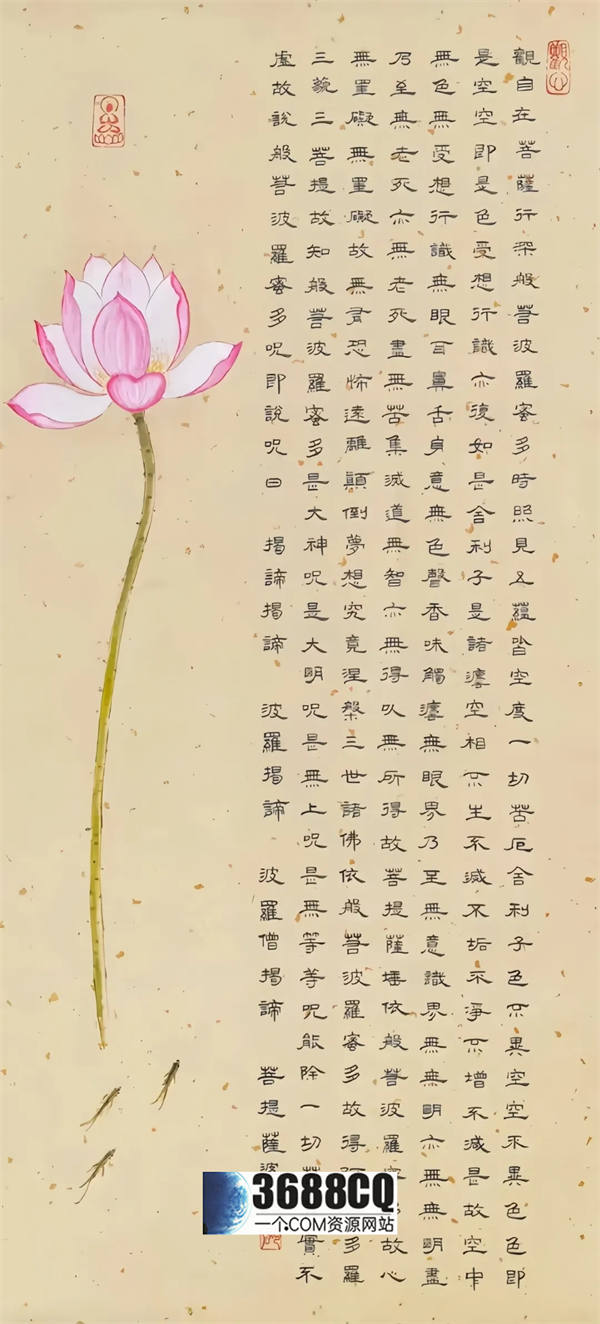 觀自在菩薩行深般若波羅蜜多時照見五蘊皆空度一切苦厄舍利子色不異空空不異色色即
是空空即是色受想行識亦復如是舍利子是諸灋空相不生不滅不垢不淨不增不減是故空中
無色無受想行識無眼耳鼻舌身意無色聲香味觸灋無眼界乃至無意識界無無明亦無無明盡
乃至無老死亦無老死盡無苦集滅道無智亦無得以無所得故菩提薩埵依般若波羅故心
無罣礙無罣礙故無有恐怖遠離顛倒夢想究竟涅槃三世諸佛依般若波羅蜜多故得多羅
三藐三菩提故知般若波羅蜜多是大神呪是大明呪是無上呪是無等等呪能除一切實不
虛故說般若波羅蜜多呪即說呪曰 揭諦揭諦 波羅揭諦 波羅僧揭諦 菩提薩婆
3688CQ
一个.COM资源网站